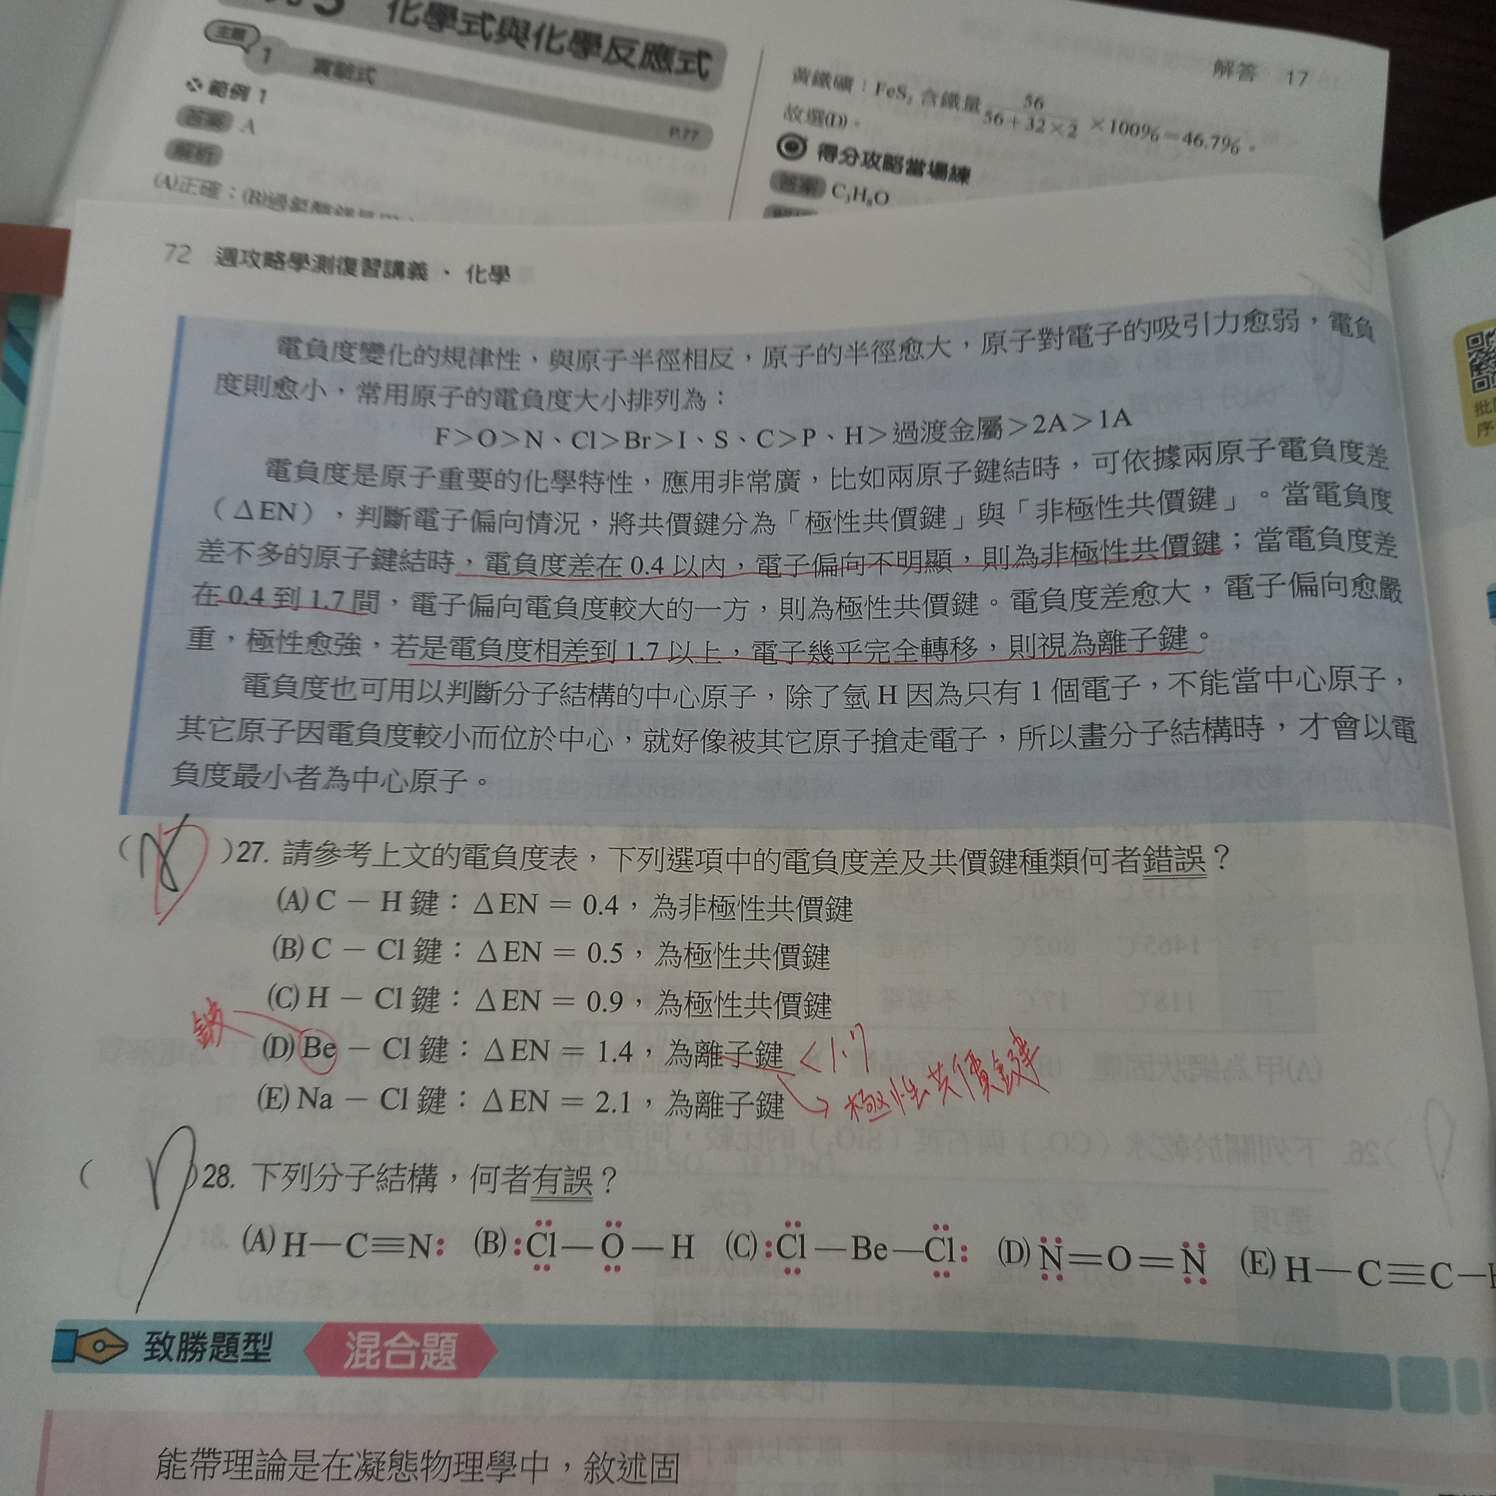 化學式與化學反應式
主題
1 實驗式
P.77
範例 1
答案 A
解析
(A)正確：
解答 17
黃鐵礦：FeS₂ 含鐵量 56/56+32×2 ×100%=46.7%。
故選(D)。
得分攻略當場練
答案 C₃H₈O
72 週攻略學測復習講義、化學
電負度變化的規律性，與原子半徑相反，原子的半徑愈大，原子對電子的吸引力愈弱，電負
度則愈小，常用原子的電負度大小排列為：
F＞O＞N、Cl＞Br＞I、S、C＞P、H＞過渡金屬＞2A＞1A
電負度是原子重要的化學特性，應用非常廣，比如兩原子鍵結時，可依據兩原子電負度差
（ΔEN），判斷電子偏向情況，將共價鍵分為「極性共價鍵」與「非極性共價鍵」。當電負度
差不多的原子鍵結時，電負度差在 0.4 以內，電子偏向不明顯，則為非極性共價鍵；當電負度差
在 0.4 到 1.7 間，電子偏向電負度較大的一方，則為極性共價鍵。電負度差愈大，電子偏向愈嚴
重，極性愈強，若是電負度相差到 1.7 以上，電子幾乎完全轉移，則視為離子鍵。
電負度也可用以判斷分子結構的中心原子，除了氫 H 因為只有 1 個電子，不能當中心原子，
其它原子因電負度較小而位於中心，就好像被其它原子搶走電子，所以畫分子結構時，才會以電
負度最小者為中心原子。
（ ）27. 請參考上文的電負度表，下列選項中的電負度差及共價鍵種類何者錯誤？
(A) C － H 鍵：ΔEN = 0.4，為非極性共價鍵
(B) C － Cl 鍵：ΔEN = 0.5，為極性共價鍵
(C) H － Cl 鍵：ΔEN = 0.9，為極性共價鍵
鈹
(D) Be － Cl 鍵：ΔEN = 1.4，為離子鍵 <1.7
極性共價鍵
(E) Na － Cl 鍵：ΔEN = 2.1，為離子鍵
（ ）28. 下列分子結構，何者有誤？
(A) H—C≡N: (B) :Cl—O—H (C) :Cl—Be—Cl: (D) N=O=N (E) H—C≡C—H
致勝題型 混合題
能帶理論是在凝態物理學中，敘述固